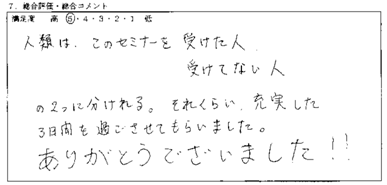 7. 総合評価・総合コメント
満足度 高 ⑤・4・3・2・1 低
人類は、このセミナーを 受けた人
受けてない人
の2つに分けれる。それくらい、充実した
3日間を過ごさせてもらいました。
ありがとうございました!!